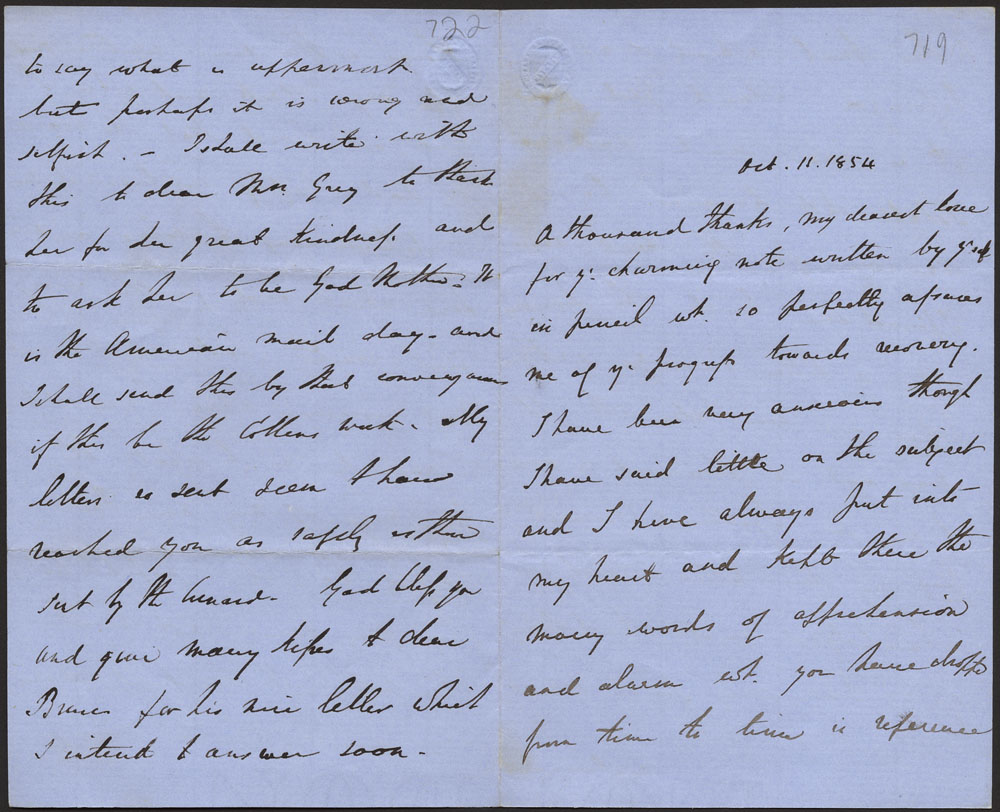 722
to say what is uppermost
but perhaps it is wrong and
selfish. - I shall write with
this to dear Mrs. Grey to thank
her for her great kindness and
to ask her to be God Mother - It
is the American mail day - and
I shall send this by that conveyance
if this be the Collins week - My
letters so sent seem to have
reached you as safely as those
sent by the Cunard - God bless you
and give many kisses to dear
Bruce for his nice letter which
I intend to answer soon -
719
Oct. 11. 1854
A thousand thanks, my dearest love
for yr. charming note written by yrself
in pencil wh. so perfectly assures
me of yr. progress towards recovery.
I have been very anxious though
I have said little on the subject
and I have always put into
my heart and kept there the
many words of apprehension
and alarm wh. you have dropt
from time to time in reference